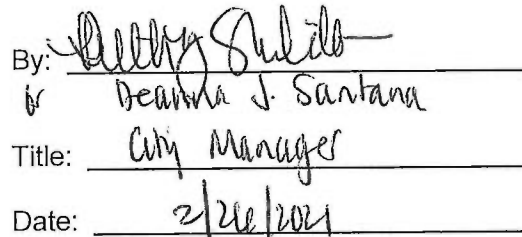 By:
for Deanna J. Santana
Title: City Manager
Date: 2/26/2021